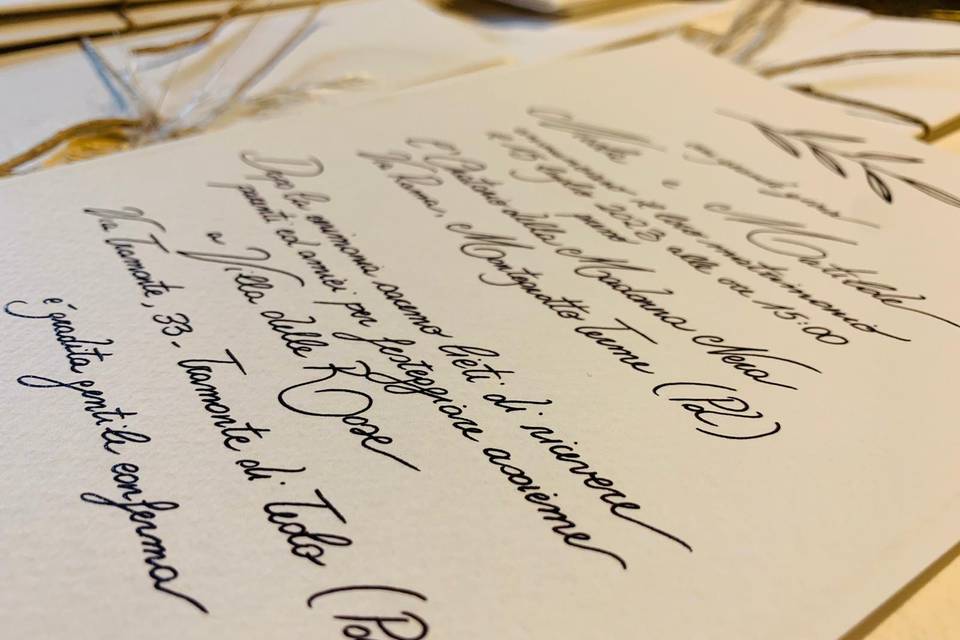 con grande gioia
e Matilde
annunciano il loro matrimonio
il 15 luglio 2023 alle ore 15:00
presso
l'Oratorio della Madonna Nera
Via Roma, Montegrotto Terme (Pd)
Dopo la cerimonia saremo lieti di ricevere
parenti ed amici per festeggiare assieme
a Villa delle Rose
Via Tramonte, 33 - Tramonte di Teolo (Pd
è gradita gentile conferma